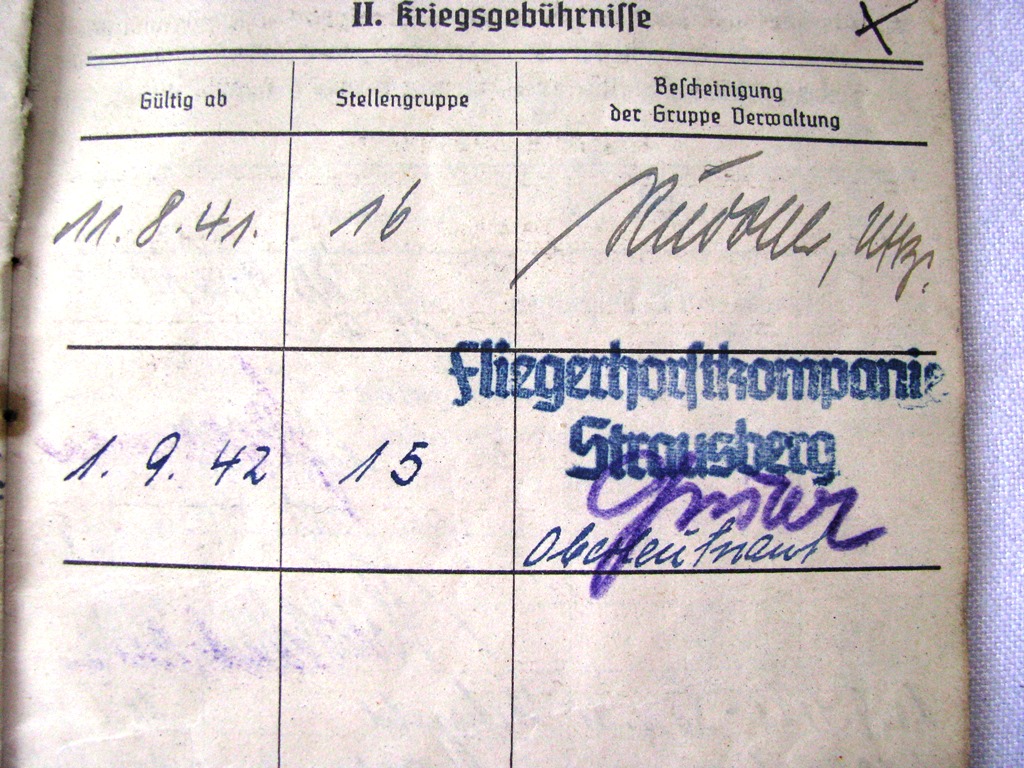 II. Kriegsgebührnisse
Gültig ab
Stellengruppe
Bescheinigung
der Gruppe Verwaltung
11.8.41.
16
1.9.42
15
Fliegerhorstkompanie
Strausberg
Oberleutnant